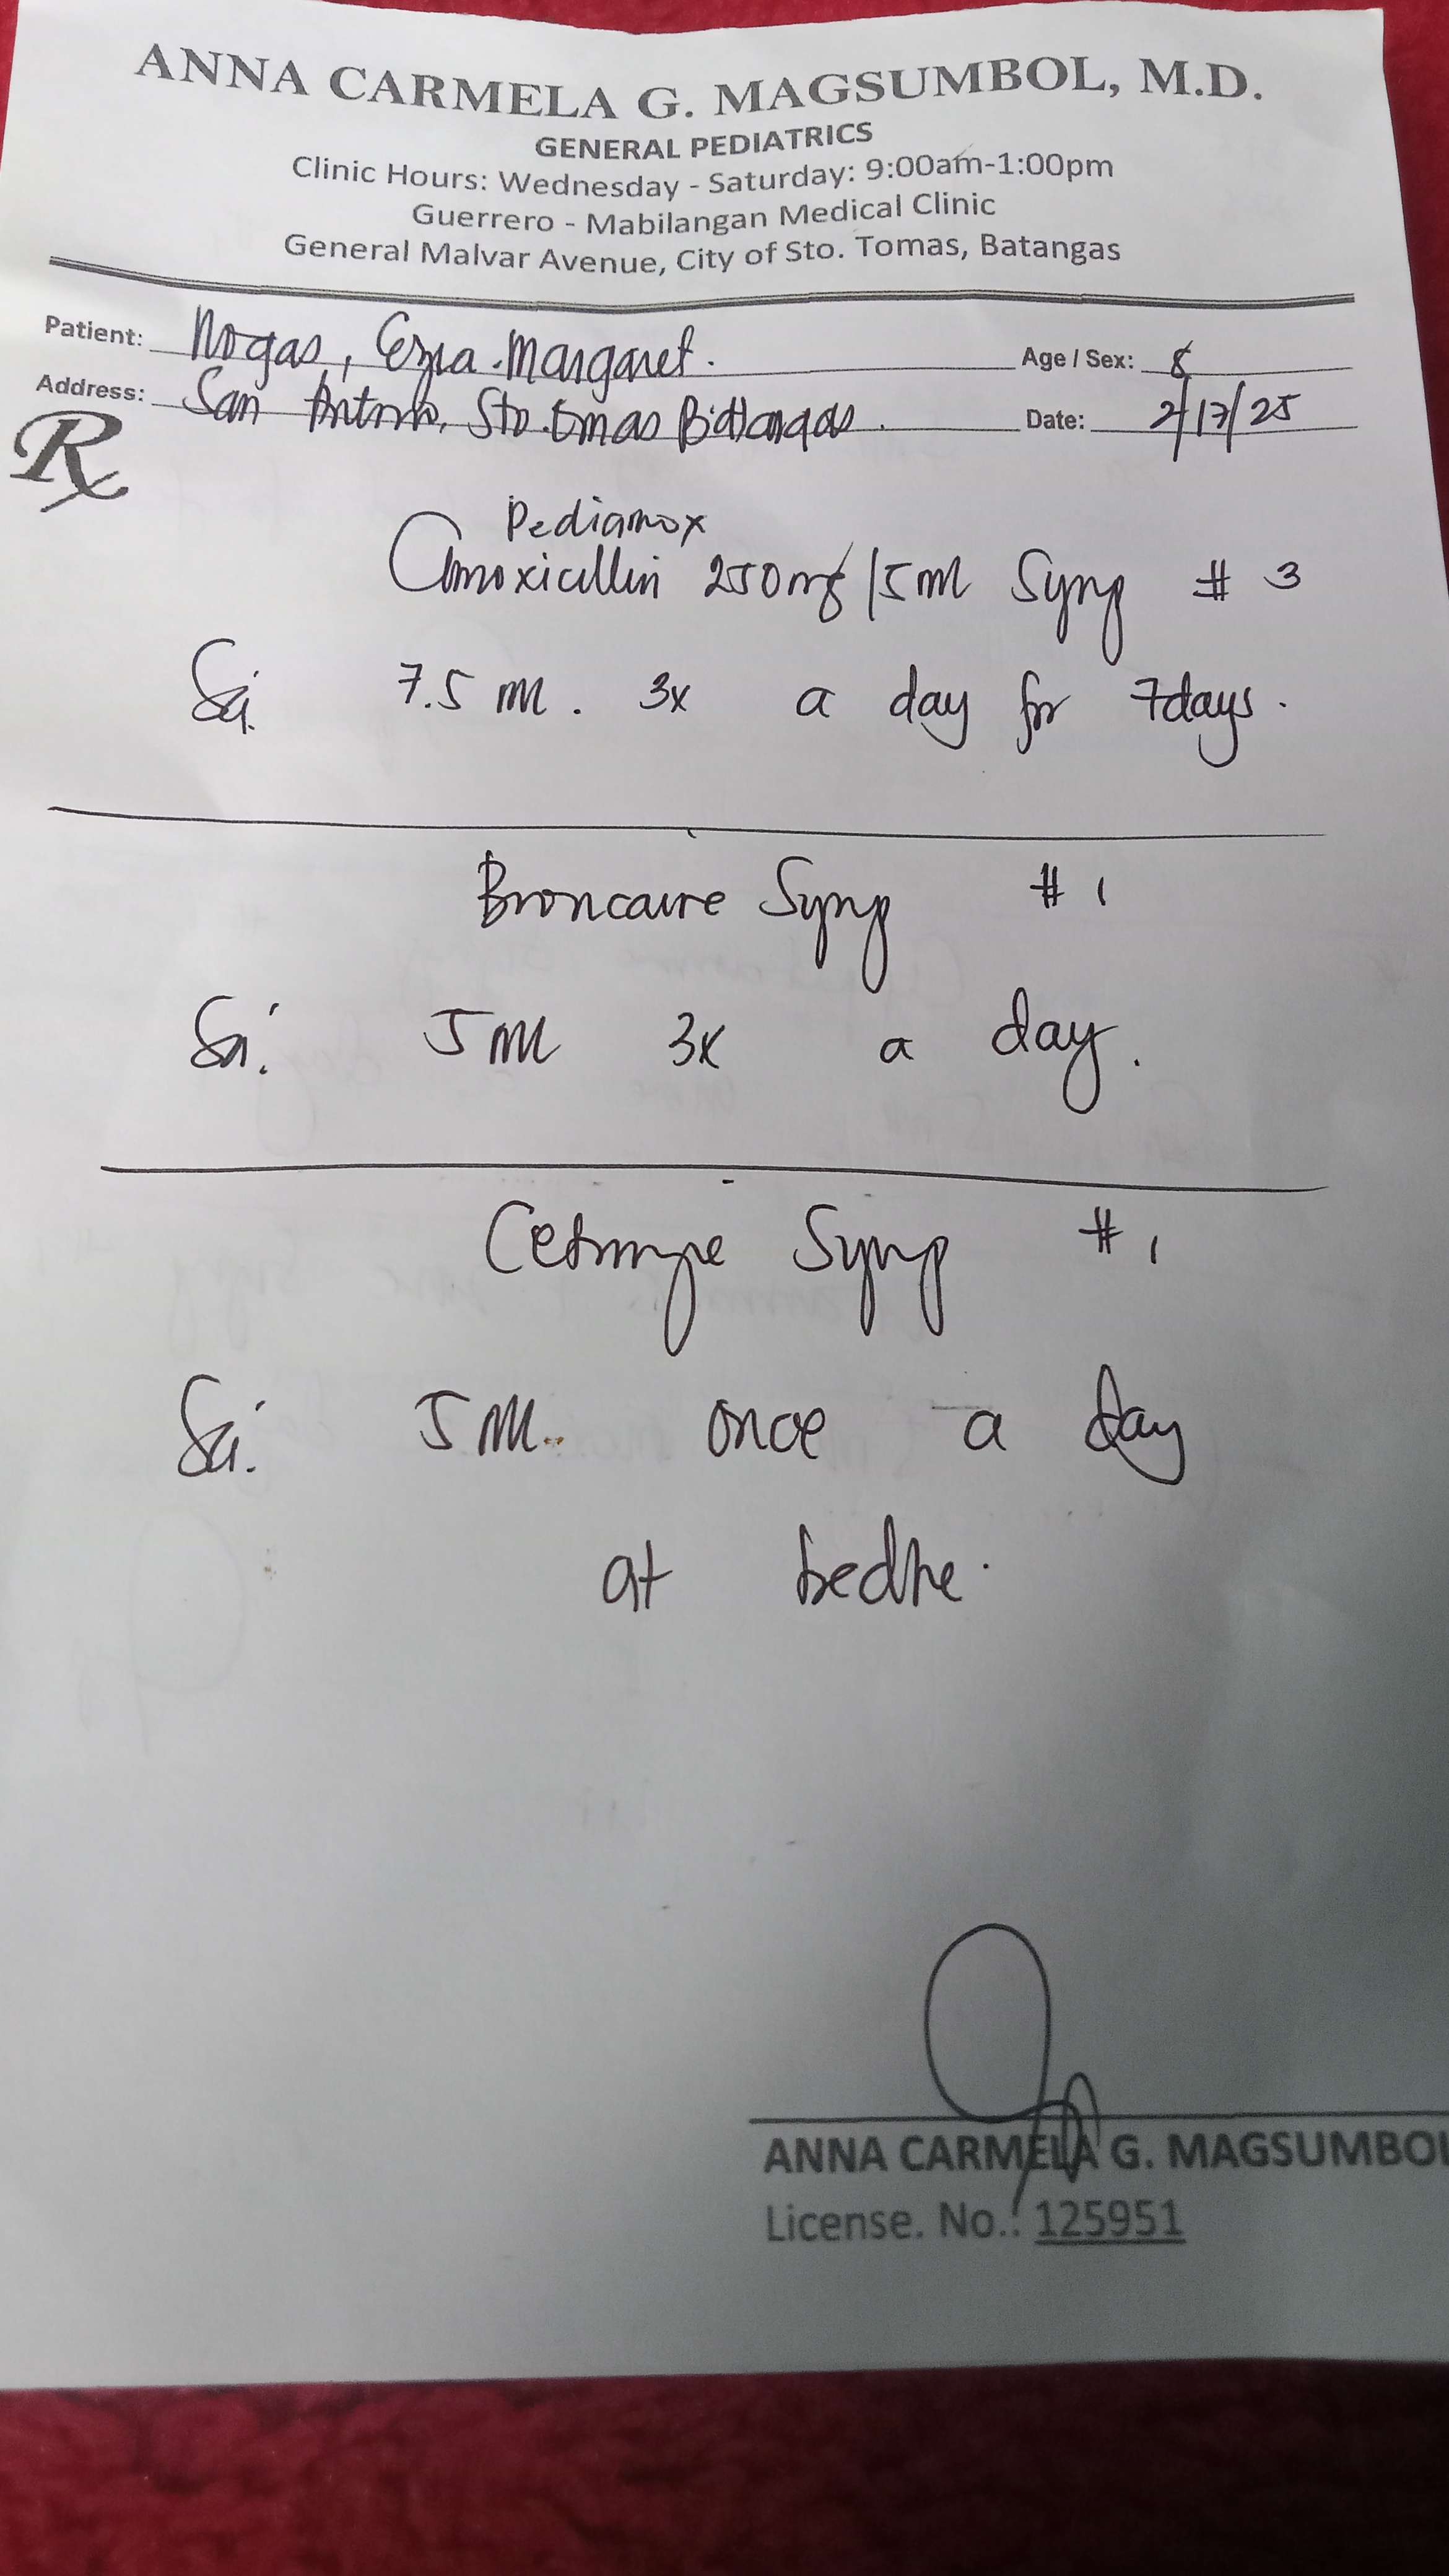 ANNA CARMELA G. MAGSUMBOL, M.D.
GENERAL PEDIATRICS
Clinic Hours: Wednesday - Saturday: 9:00am-1:00pm
Guerrero - Mabilangan Medical Clinic
General Malvar Avenue, City of Sto. Tomas, Batangas
Patient: Nogas, Margaret. Age / Sex: 8
Address: San Antonio, Sto. Tomas Batangas. Date: 2/17/25
Rx
Pediamox
Amoxicillin 250mg/5ml Syrup # 3
7.5 ml. 3x a day for 7days.
Broncaire Syrup # 1
5 ml 3x a day.
Cetirizine Syrup # 1
5 ml. once a day
at bedtime.
ANNA CARMELA G. MAGSUMBOL
License. No.: 125951